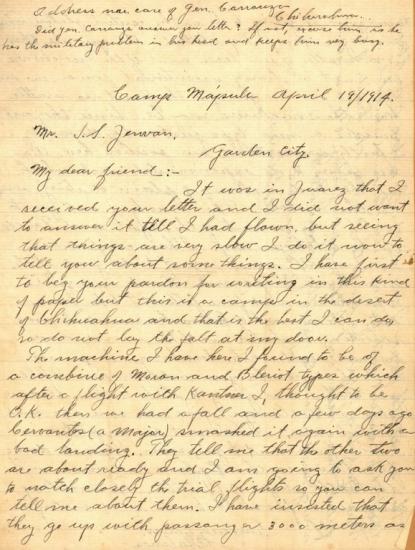 Address me care of Gen. Carranza
Chihuahua...
Did Gen. Carranza answer your letter? If not, excuse him is he
has the military problem in his head and keeps him very busy.
Camp Mápula April 19/1914.
Mr. J.S.
Garden City.
My dear friend:-
It was in Juarez that I
received your letter and I did not want
to answer it till I had flown, but seeing
that things are very slow I do it now to
tell you about some things. I have first
to beg your pardon for writing in this kind
of paper but this is a camp in the desert
of Chihuahua and that is the best I can do,
so do not lay the falt at my door.
The machine I have here I found to be of
a combine of Moran and Bleriot types which
after a flight with Kantner I, thought to be
O.K. then we had a fall and a few days ago
Cervantes (a Major) smashed it again with a
bad landing. They tell me that the other two
are about ready and I am going to ask you
to watch closely the trial flights so you can
tell me about them. I have insested that
they go up with passanger 3000 meters as